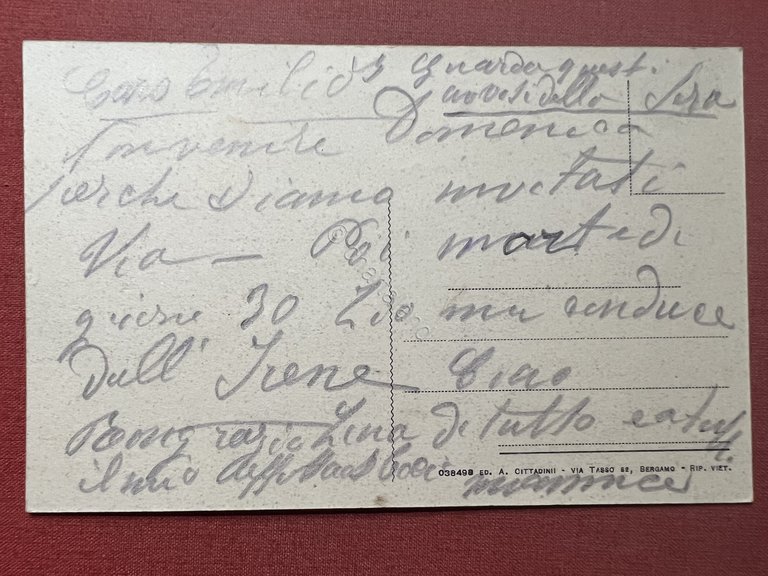 Caro Emilio Guarda questi
avvisi della Sera
non venire Domenica
perche siamo invitati
Via — Poi martedi
giorno 30 Zio mi conduce
dall' Irene Ciao
Ringrazio Lina di tutto e a tutti
il mio affettuosi baci
038498 ED. A. CITTADINI - VIA TASSO 62, BERGAMO - RIP. VIET.